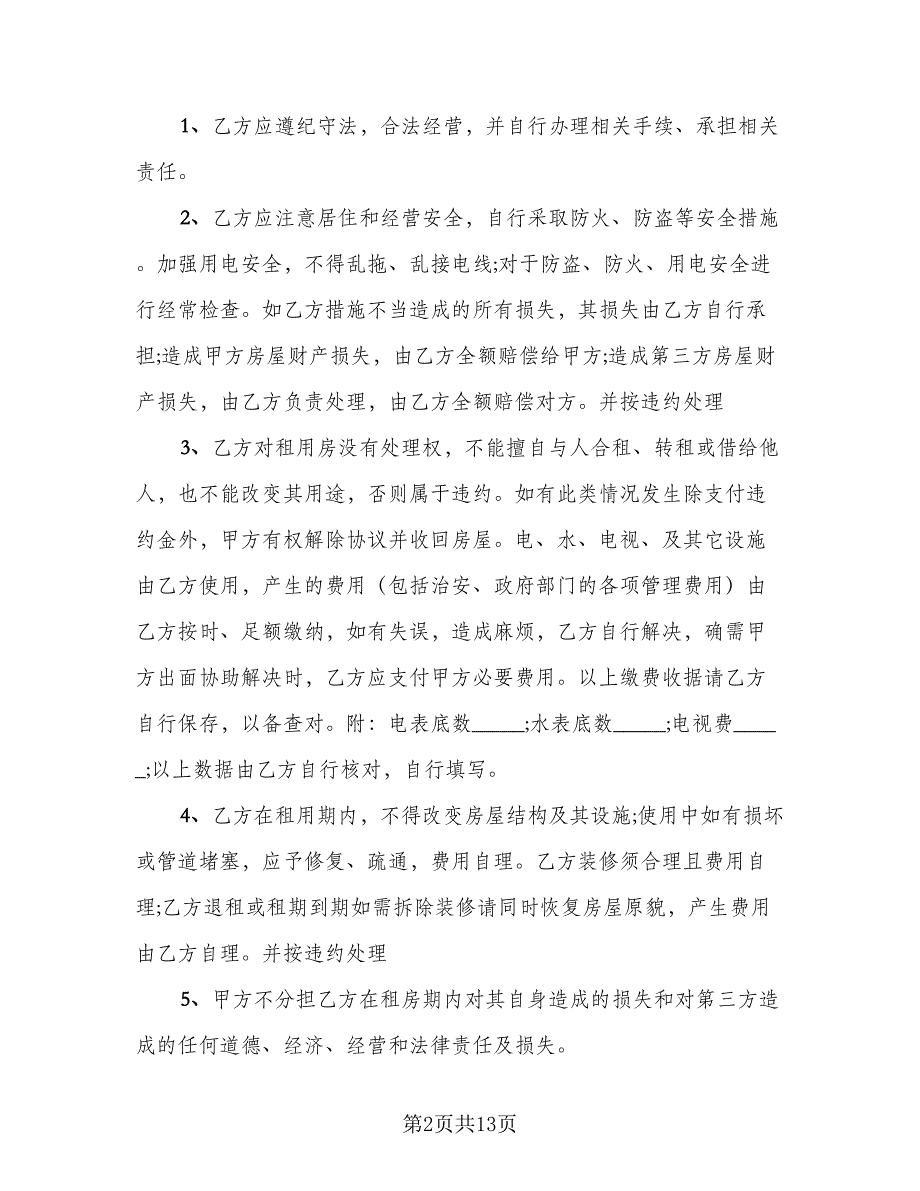 1、乙方应遵纪守法，合法经营，并自行办理相关手续、承担相关
责任。
2、乙方应注意居住和经营安全，自行采取防火、防盗等安全措施
。加强用电安全，不得乱拖、乱接电线;对于防盗、防火、用电安全进
行经常检查。如乙方措施不当造成的所有损失，其损失由乙方自行承
担;造成甲方房屋财产损失，由乙方全额赔偿给甲方;造成第三方房屋财
产损失，由乙方负责处理，由乙方全额赔偿对方。并按违约处理
3、乙方对租用房没有处理权，不能擅自与人合租、转租或借给他
人，也不能改变其用途，否则属于违约。如有此类情况发生除支付违
约金外，甲方有权解除协议并收回房屋。电、水、电视、及其它设施
由乙方使用，产生的费用（包括治安、政府部门的各项管理费用）由
乙方按时、足额缴纳，如有失误，造成麻烦，乙方自行解决，确需甲
方出面协助解决时，乙方应支付甲方必要费用。以上缴费收据请乙方
自行保存，以备查对。附：电表底数_____;水表底数_____;电视费____
_;以上数据由乙方自行核对，自行填写。
4、乙方在租用期内，不得改变房屋结构及其设施;使用中如有损坏
或管道堵塞，应予修复、疏通，费用自理。乙方装修须合理且费用自
理;乙方退租或租期到期如需拆除装修请同时恢复房屋原貌，产生费用
由乙方自理。并按违约处理
5、甲方不分担乙方在租房期内对其自身造成的损失和对第三方造
成的任何道德、经济、经营和法律责任及损失。
第2页共13页